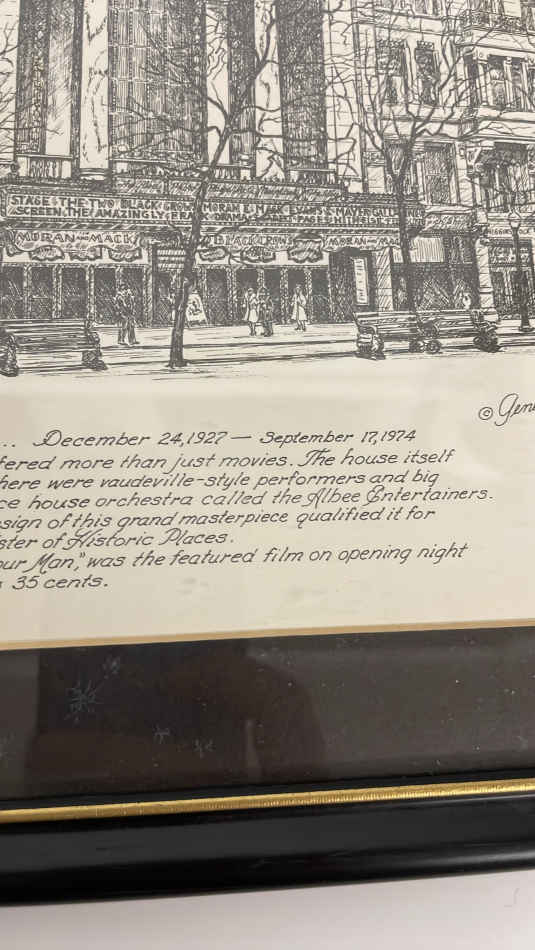 STAGE: THE TWO BLACK CROWS MORAN & MACK
SCREEN: THE AMAZINGLY DRAMA
MORAN AND MACK BLACK CROWS MORAN AND MAC
© Gen
... December 24, 1927 — September 17, 1974
fered more than just movies. The house itself
here were vaudeville-style performers and big
ce house orchestra called the Albee Entertainers.
sign of this grand masterpiece qualified it for
ster of Historic Places.
our Man," was the featured film on opening night
35 cents.